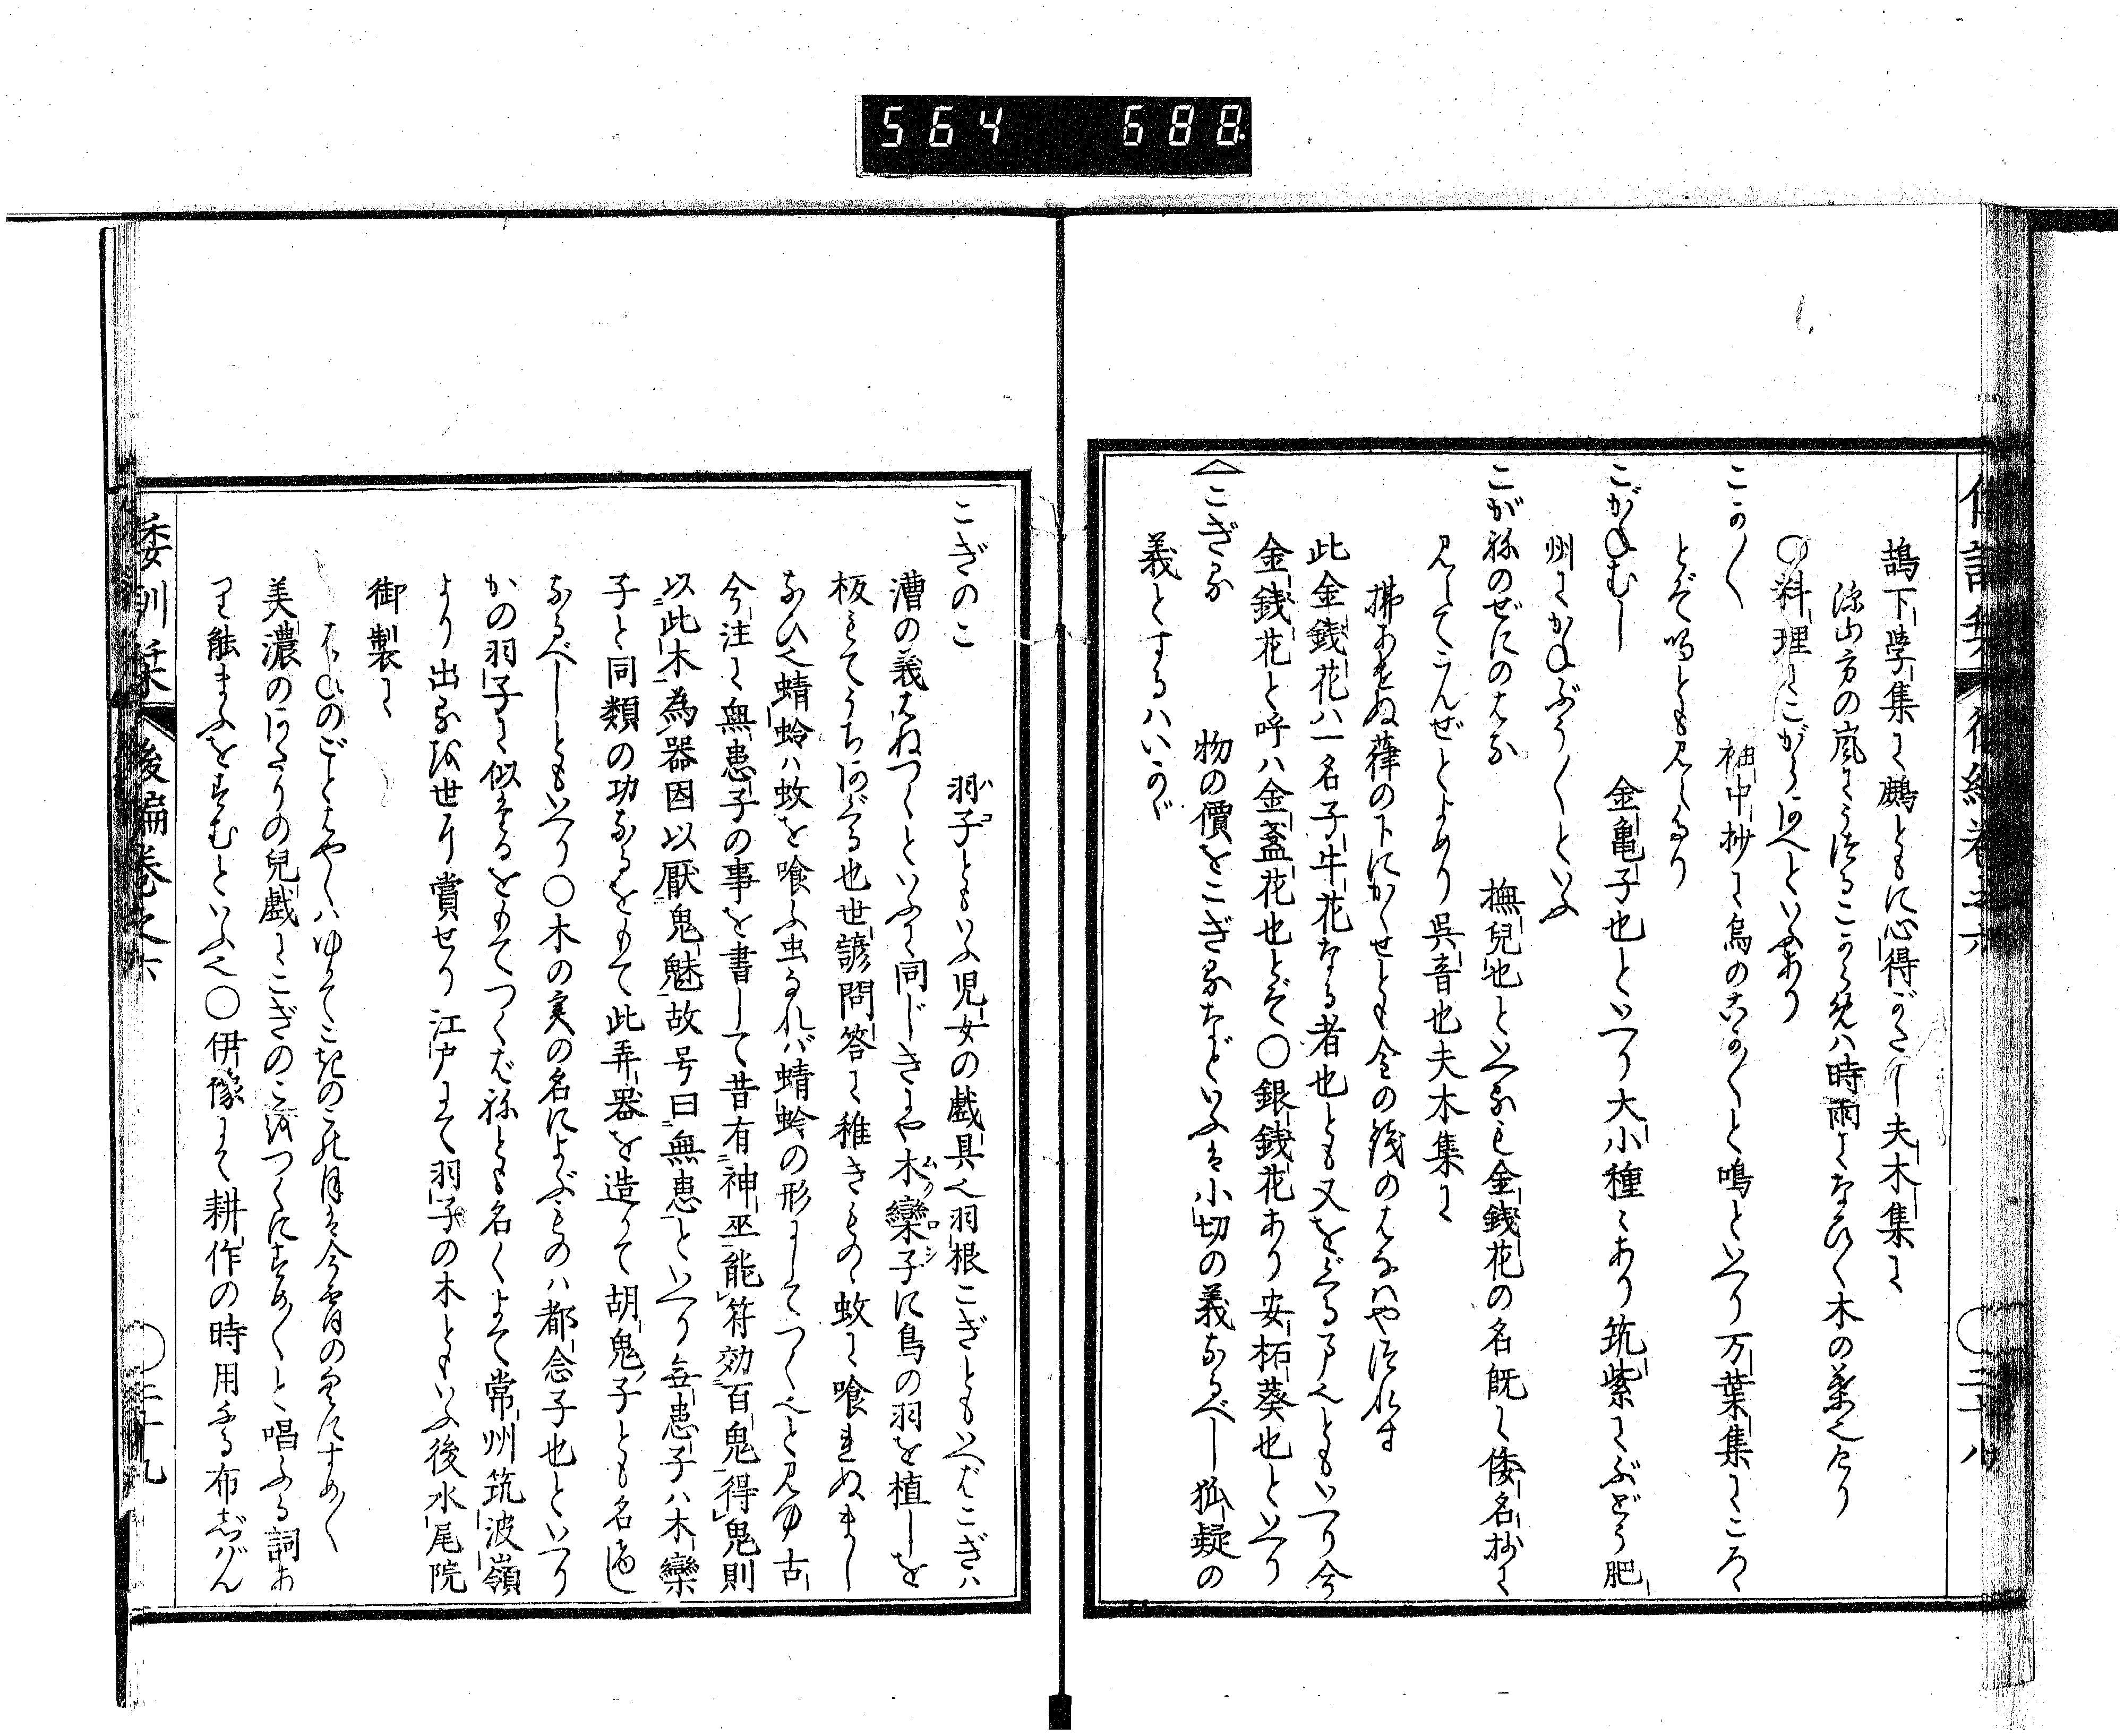 564 688
鵠下学集に鷓ともに心得がたし夫木集に
深山方の嵐にうつるこがらめハ時雨になひく木の葉也けり
○料理にこがうあへといふあり
こかく 袖中抄に烏のなくこかくと鳴といへり万葉集にころく
とぞ鳴とも見えたり
こがねむし 金亀子也といへり大小種々あり筑紫にぶどう肥
州にかねぶうくといふ
こがねのぜにのはな 撫児也といへるも金銭花の名既に倭名抄に
見えてこんぜとよめり呉音也夫木集に
拂あせぬ葎の下にかくせとも金の錢のはなハやつれす
此金錢花ハ一名子午花なる者也とも又をぐるま也ともいへり今
金錢花と呼ハ金盞花也とぞ○銀錢花あり安柘葵也といへり
こぎる 物の價をこぎるなどいふは小切の義なるべし狐疑の
義とするハいかゞ
こぎのこ 羽子ともいふ児女の戯具也羽根こぎともいへばこぎハ
漕の義はねつくといふに同じきにや木欒子に鳥の羽を植しを
板にてうちあぐる也世諺問答に稚きものゝ蚊に喰れぬまし
なひ也蜻蛉ハ蚊を喰ふ虫なれバ蜻蛉の形にしてつく也と見ゆ古
今注に無患子の事を書して昔有神巫能符効百鬼得鬼則
以此木為器因以厭鬼魅故号曰無患といへり無患子ハ木欒
子と同類の功なるをもて此弄器を造りて胡鬼子とも名しし
なるべしともいへり○木の実の名によぶものハ都念子也といへり
かの羽子に似たるをもてつくばねとも名くよて常州筑波嶺
より出るを世に賞せり江戸にて羽子の木ともいふ後水尾院
御製に
のごとはやくハゆきてこぎのこの月は今宵の雲にすめく
美濃のあたりの兒戯にこぎのこをつくにすめくと唱ふる詞あ
り舩まふをすむといふ也○伊豫にて耕作の時用る布じばん
倭訓栞 後編巻之六 ○二十八
倭訓栞 後編巻之六 ○二十九